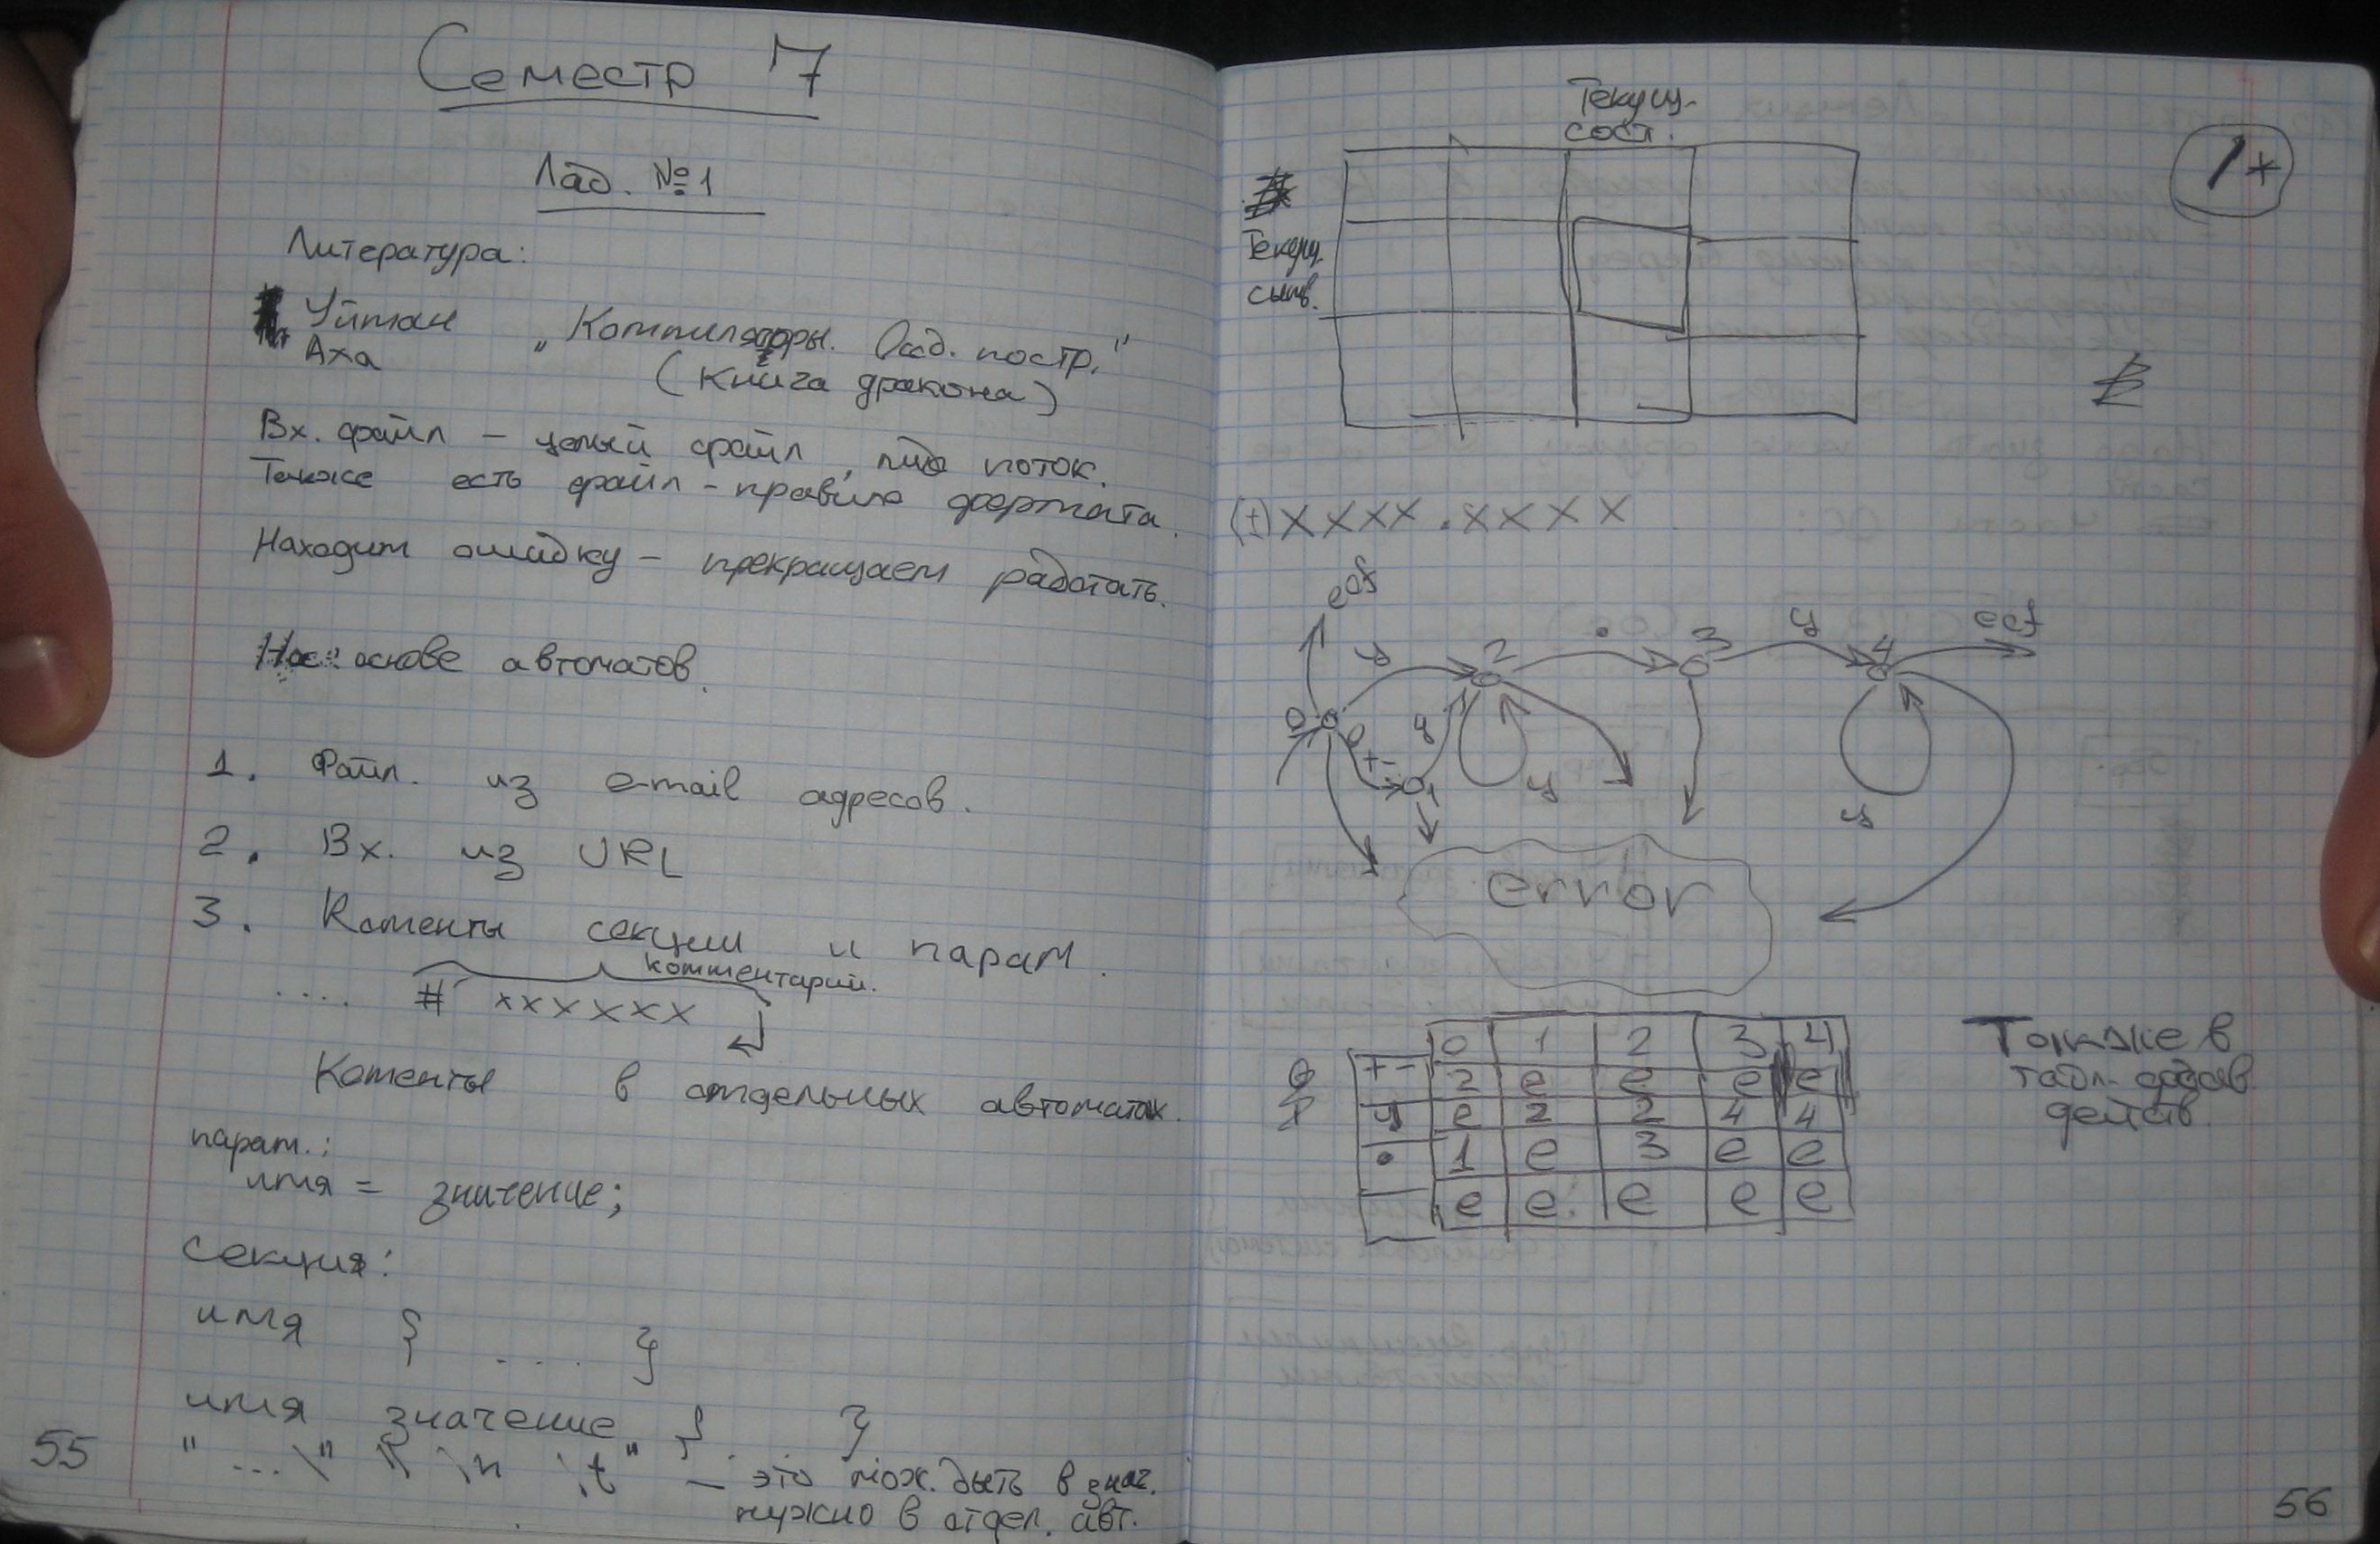 Семестр 7
Лаб. №1
Литература:
Уйтман
Аха
„Компиляторы. Осоb. постр."
(Книга дракона)
Вх. файл – целый файл, либо поток.
Также есть файл – правило формата.
Находит ошибку – прекращаем работать.
На основе автоматов.
1. Файл. из e-mail адресов.
2. Вх. из URL
3. Коменты секции и парам.
комментарий.
.... # xxxxxx
Коменты в отдельных автоматах.
парам.:
имя = значение;
секция:
имя { .... }
имя значение { .. }
"...\" \\ \n \t" – это мож. быть в знач.
нужно в отдел. авт.
55
Текущ.
сост.
1*
Текущ.
симв.
(±)xxxx.xxxx
eof
ц 2 . 3 ц 4 eof
0 +- ц 1 ц ц
error
0 1 2 3 4
+- 2 e e e e
ц e 2 2 4 4
• 1 e 3 e e
e e e e e
Также в
табл. добав.
действ.
56